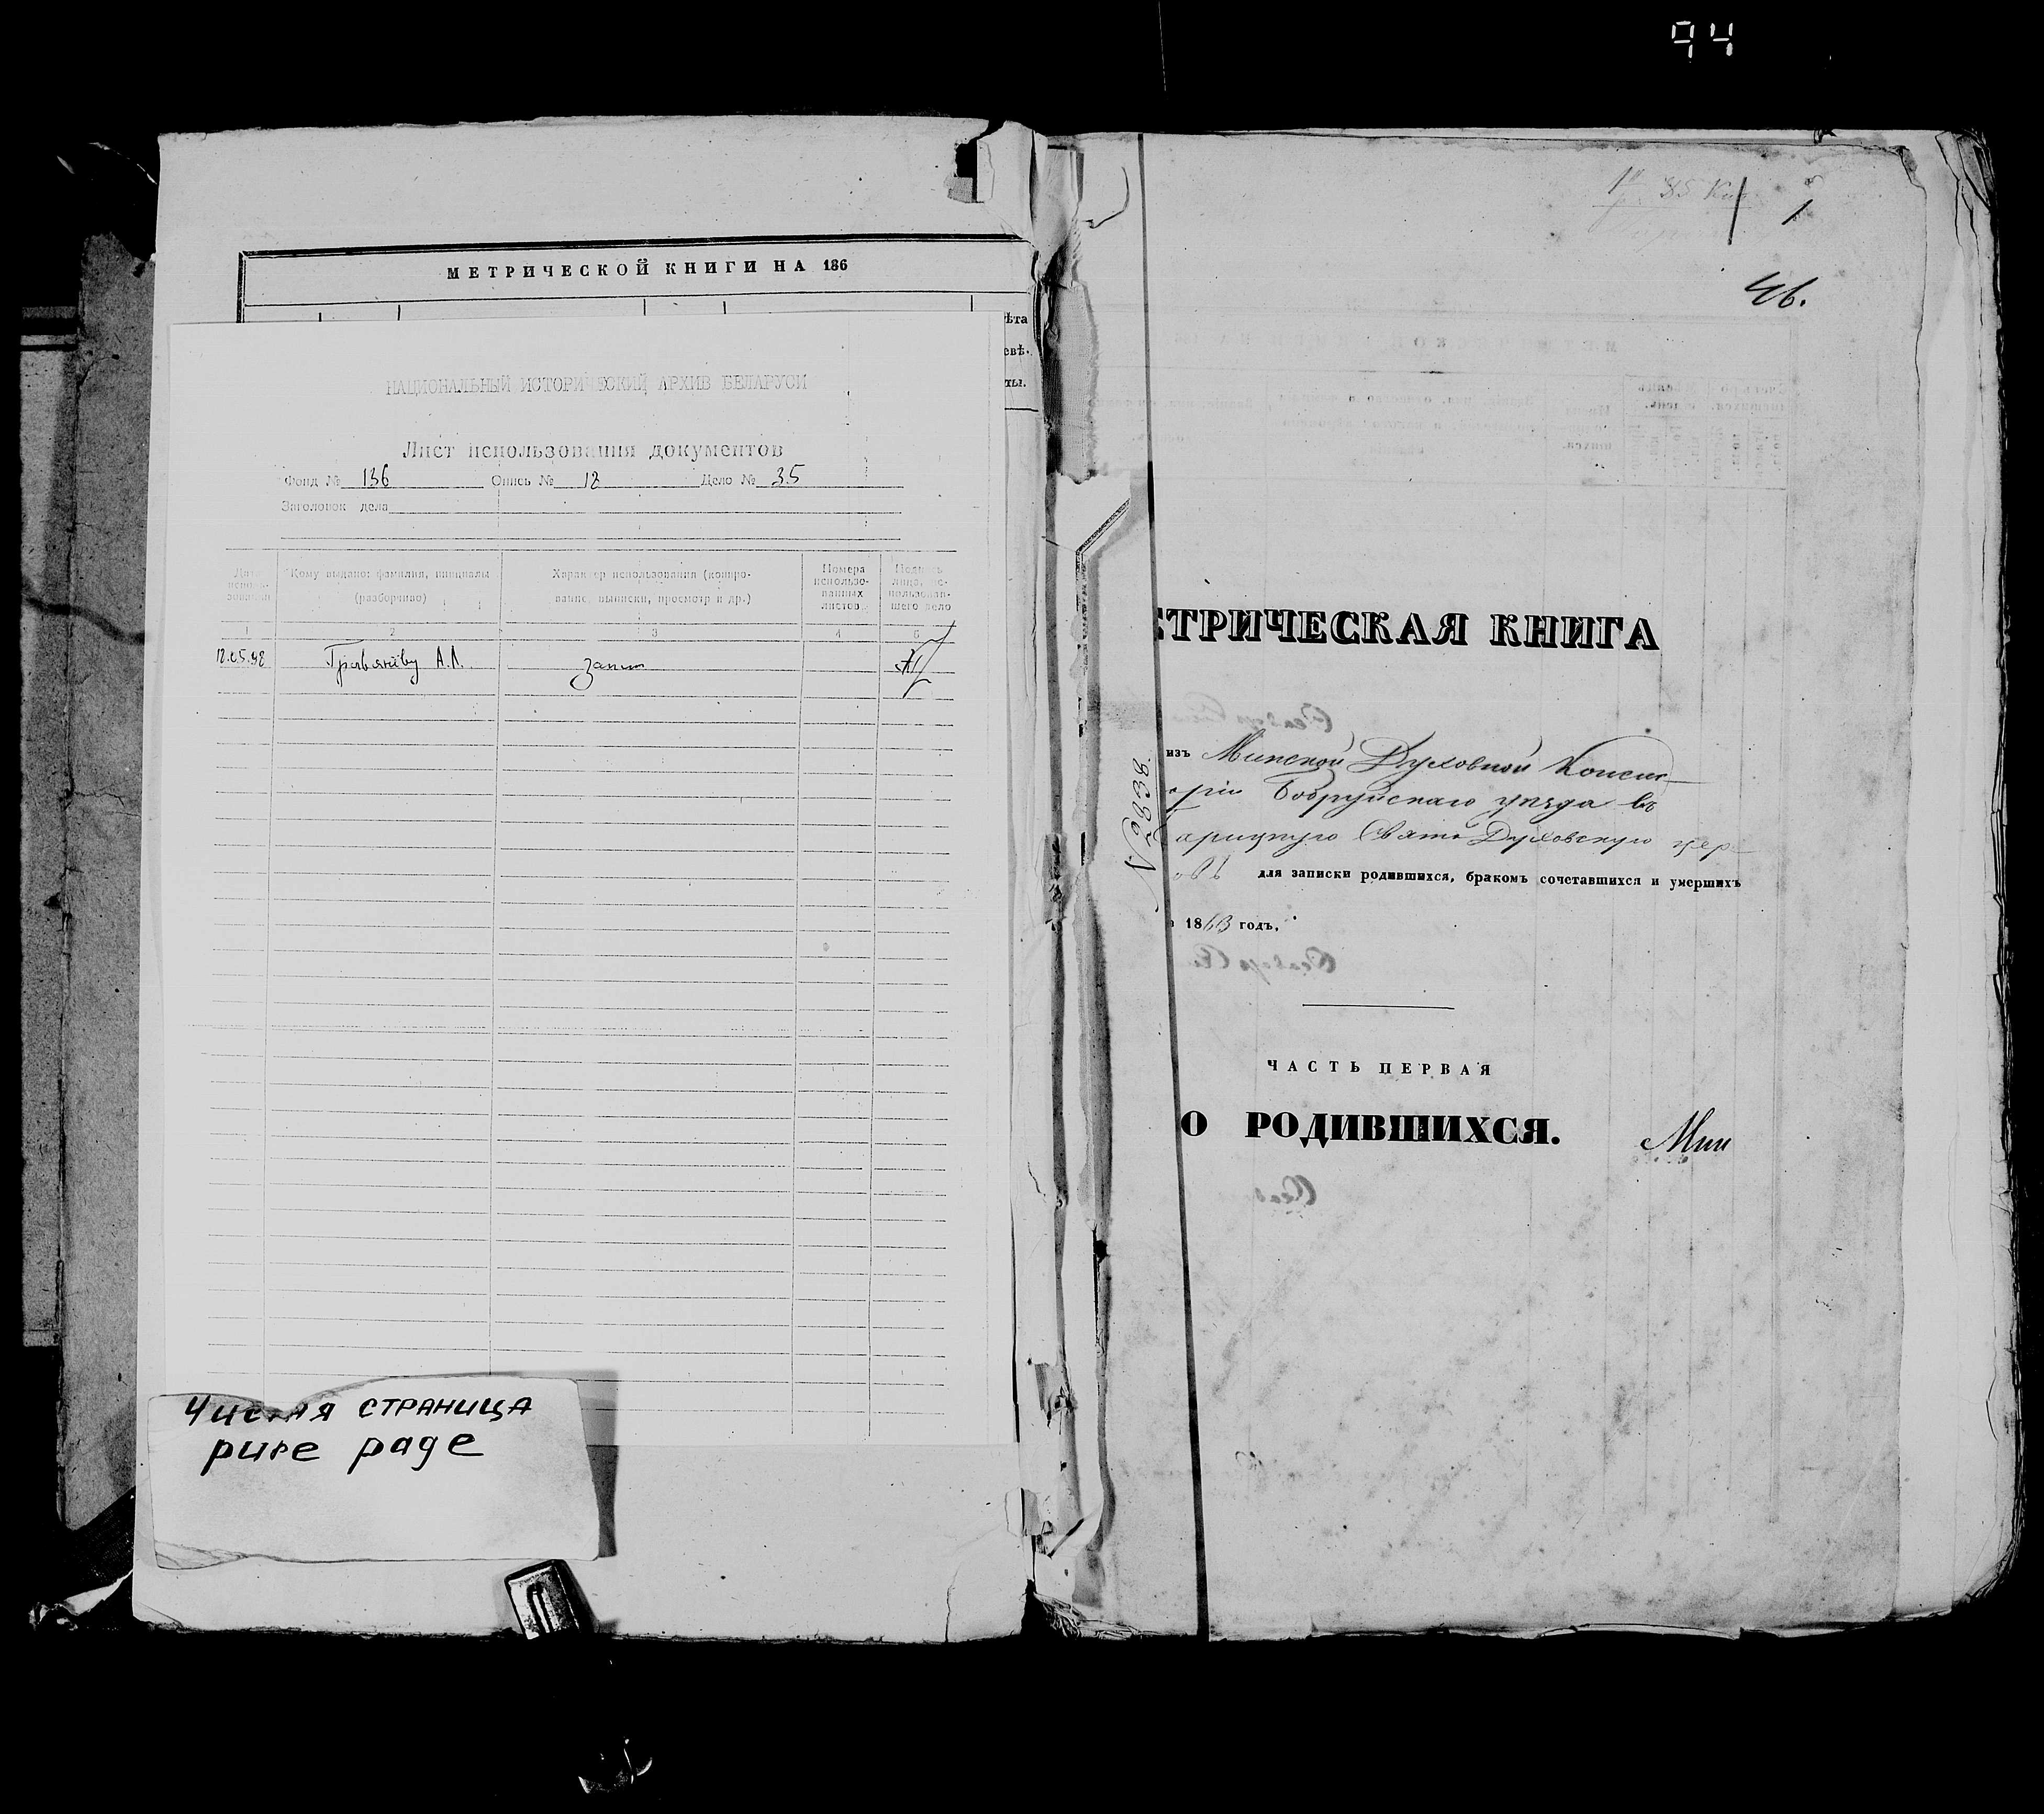 94
МЕТРИЧЕСКОЙ КНИГИ НА 186
ѣта
евѣ-
ты.
НАЦИОНАЛЬНЫЙ ИСТОРИЧЕСКИЙ АРХИВ БЕЛАРУСИ
Лист использования документов
Фонд № 136 Опись № 12 Дело № 35
Заголовок дела
Дата использования
Кому выдано: фамилия, инициалы (разборчиво)
Характер использования (копирование, выписки, просмотр и др.)
Номера использо-ванных листов
Подпись лица, ис-пользовав-шего дело
1 2 3 4 5
12.05.98 А.Л.
Чистая страница
pure page
1
46.
ТРИЧЕСКАЯ КНИГА
изъ Минской Духовной Консис
оріи Бобруйскаго уѣзда въ
арицкую Свято Духовскую цер-
овь для записки родившихся, бракомъ сочетавшихся и умершихъ
1863 годъ.
№ 2838
ЧАСТЬ ПЕРВАЯ
О РОДИВШИХСЯ.
Мин